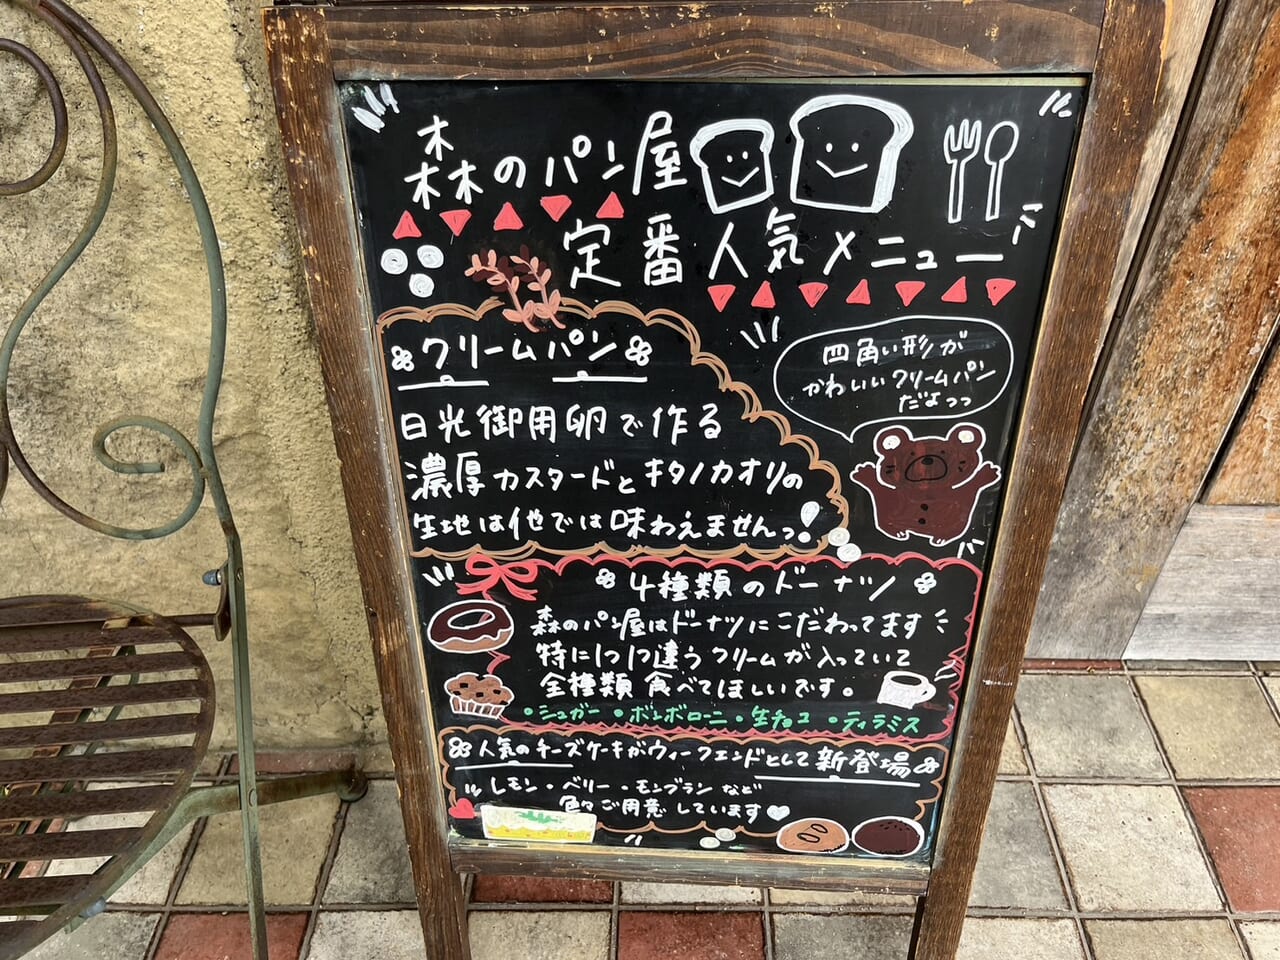 森のパン屋
定番人気メニュー
クリームパン
日光御用卵で作る
濃厚カスタードとキタノカオリの
生地は他では味わえませんっ!
四角い形が
かわいいクリームパン
だよっっ
4種類のドーナツ
森のパン屋はドーナツにこだわってます
特に1つ1つ違うクリームが入っていて
全種類食べてほしいです。
・シュガー ・ボンボローニ ・生チョコ ・ティラミス
人気のチーズケーキがウィークエンドとして新登場
レモン・ベリー・モンブランなど
色々ご用意しています